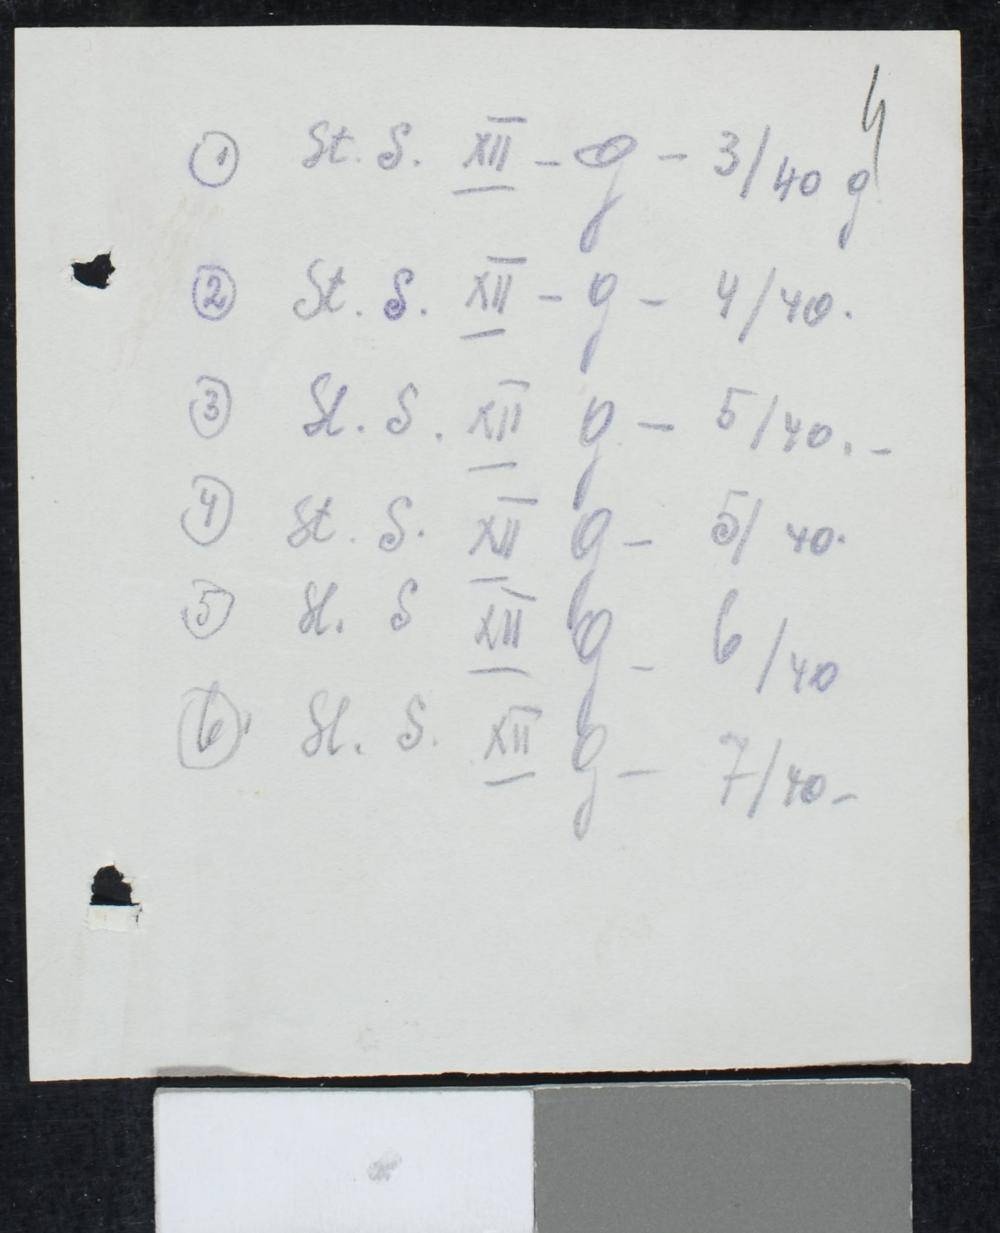 4
① St. S. XII - g - 3/40 g
② St. S. XII - g - 4/40.
③ St. S. XII g - 5/40. -
④ St. S. XII g - 5/40.
⑤ St. S XII g - 6/40
⑥ St. S. XII g - 7/40 -